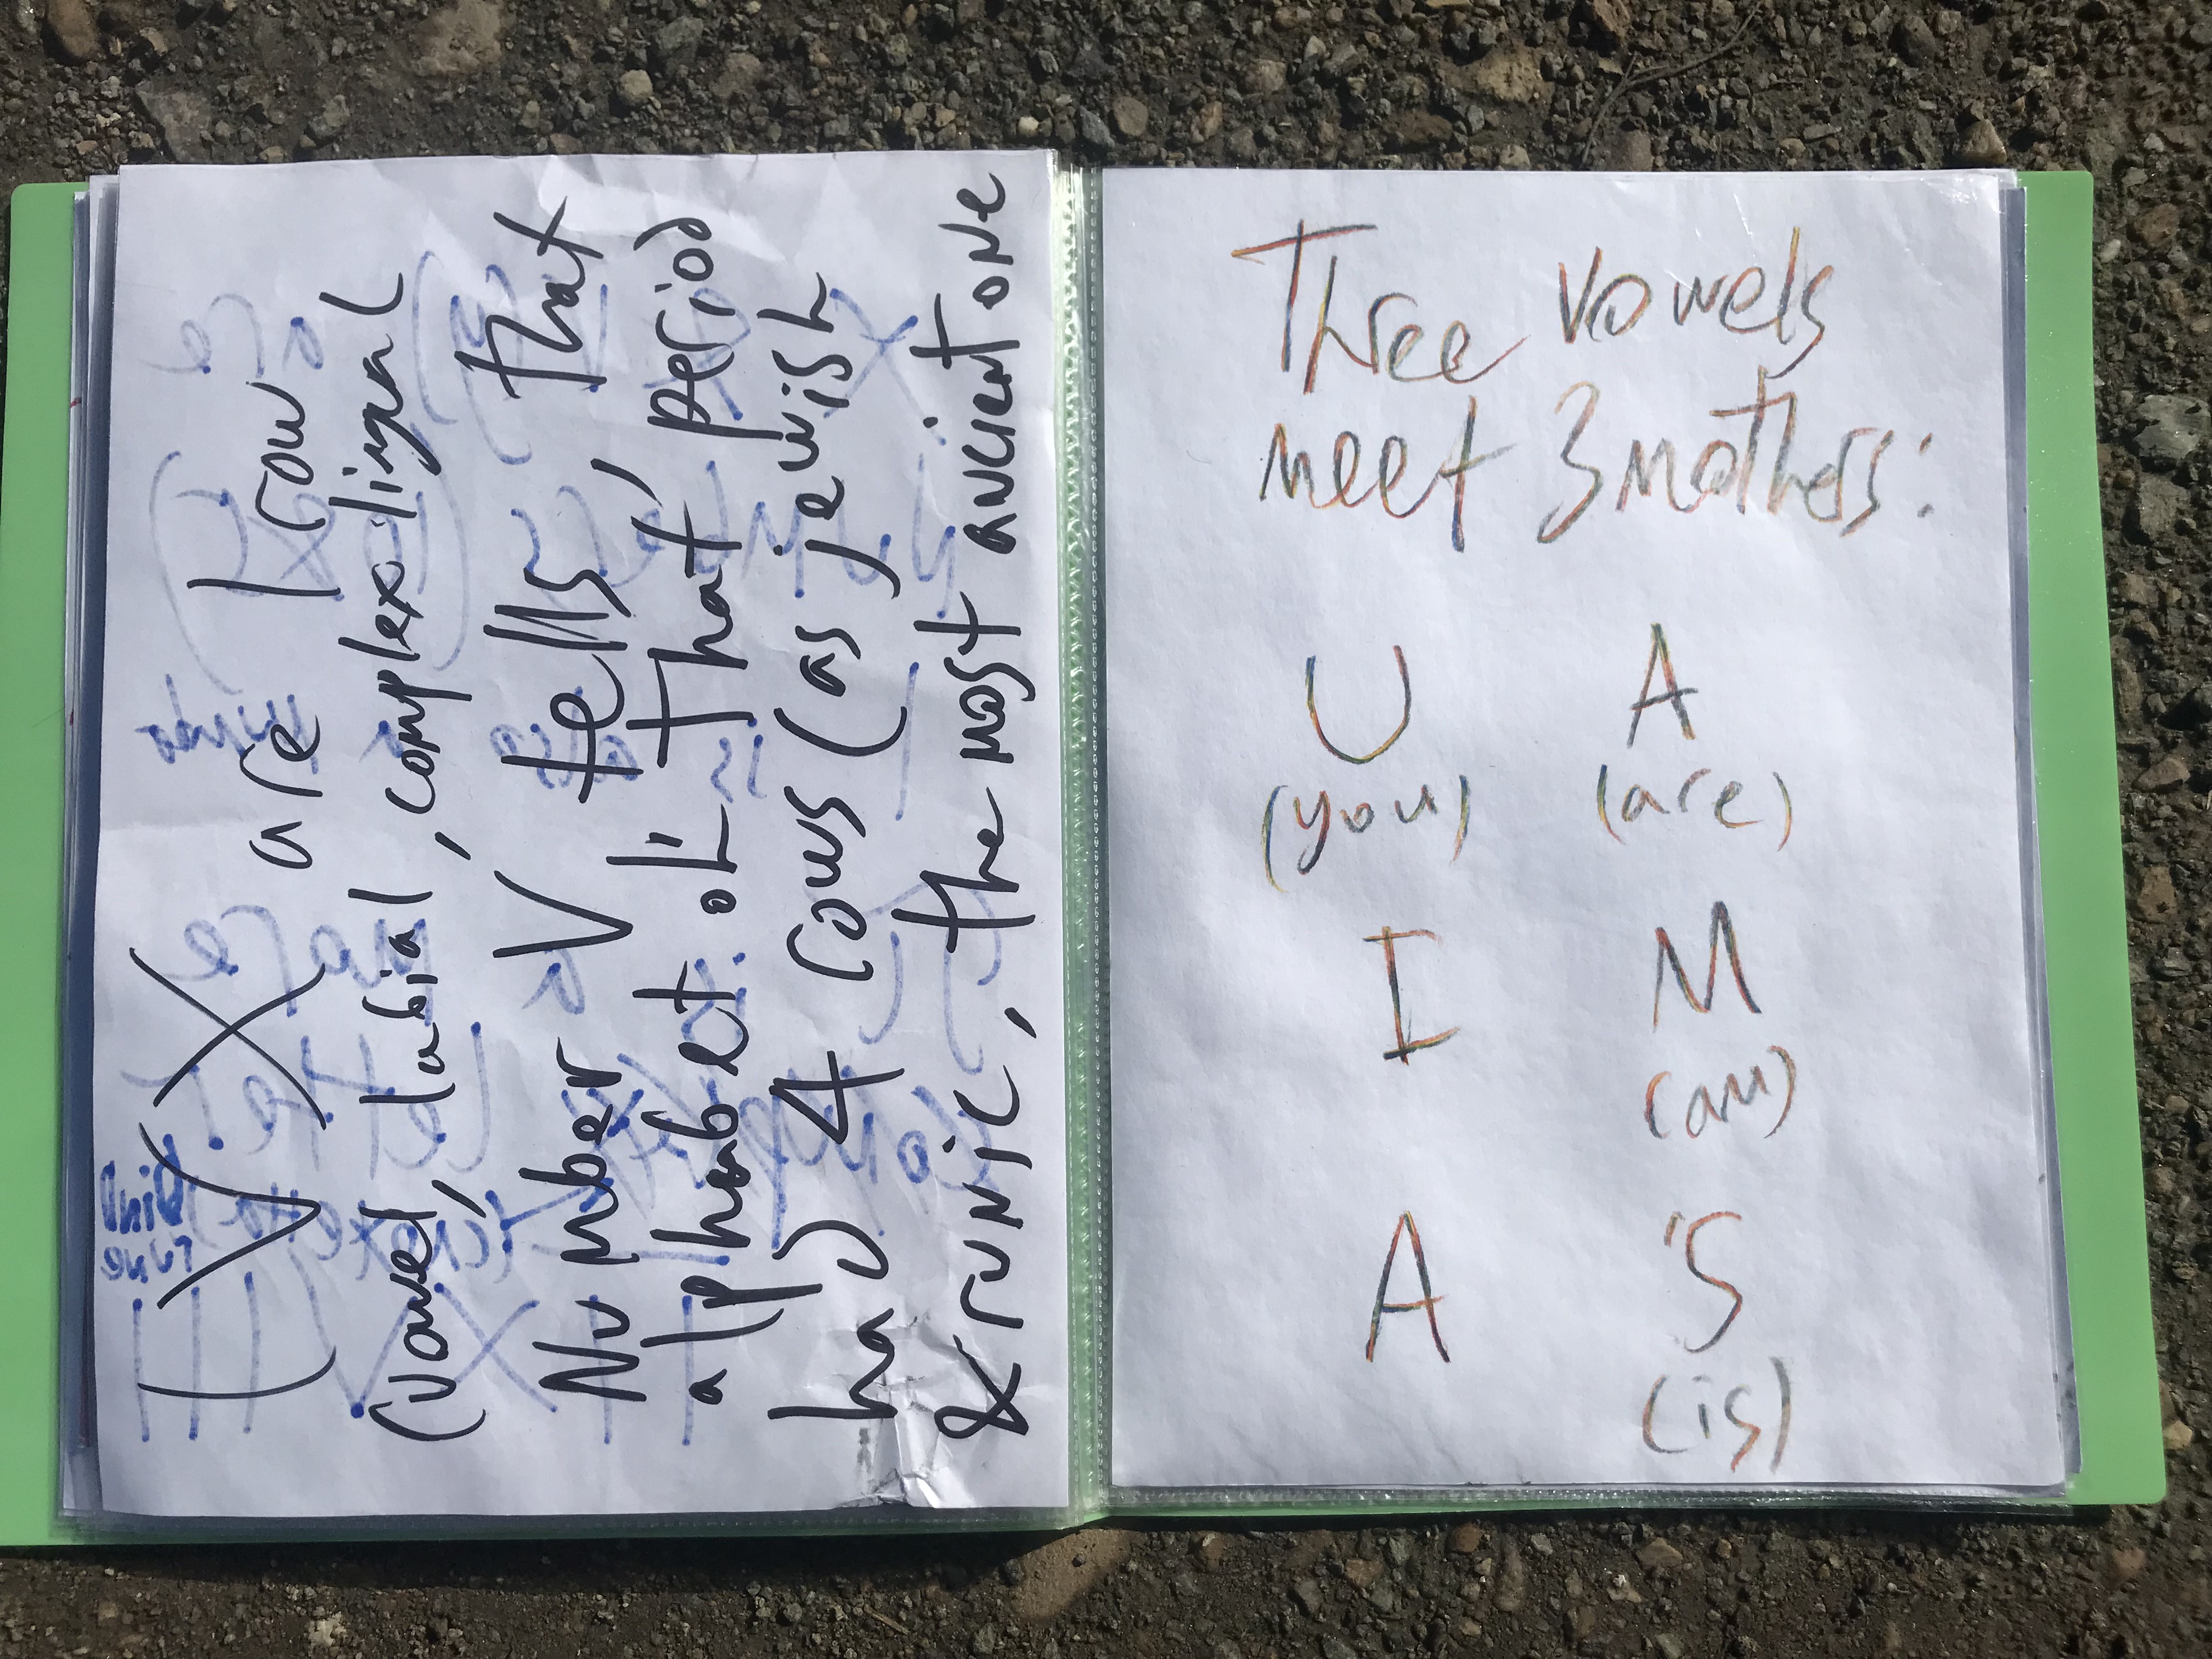 IVX are 1 row
(vowel, labial, complex-lingual
Number V tells, that
alphabet of that, period
had 4 rows (as jewish
& runic, the most ancient one
Three vowels
meet 3 mothers:
U A
(you) (are)
I M
(am)
A 'S
(is)